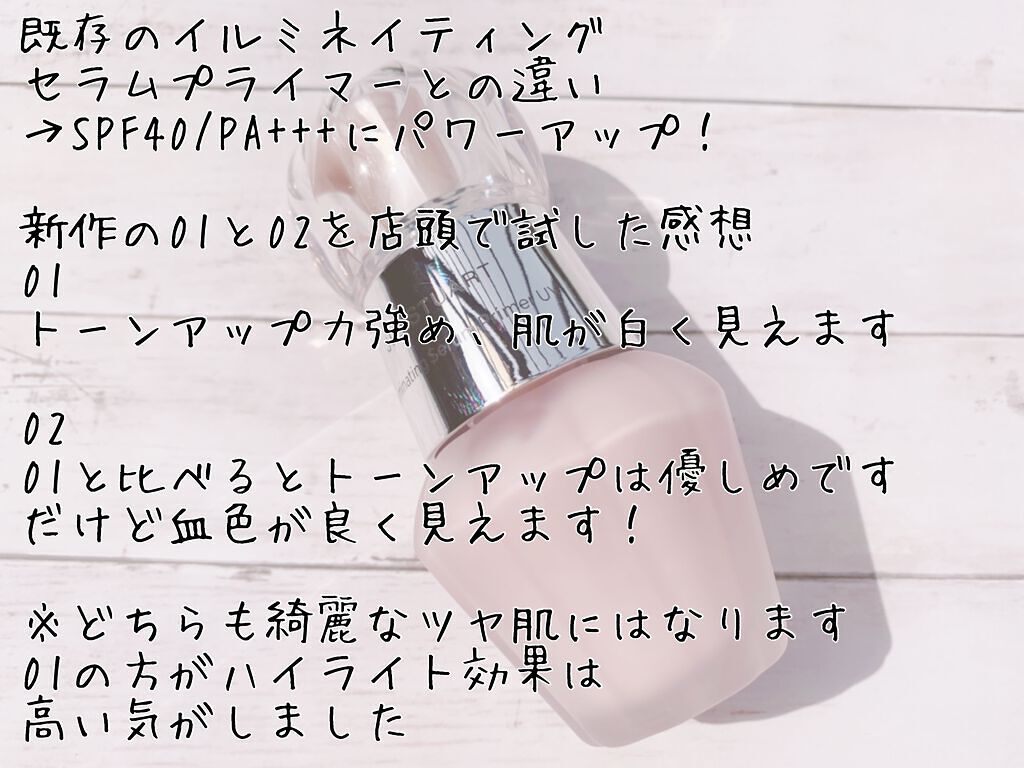 既存のイルミネイティング
セラムプライマーとの違い
→SPF40/PA+++にパワーアップ！
新作の01と02を店頭で試した感想
01
トーンアップ力強め、肌が白く見えます
02
01と比べるとトーンアップは優しめです
だけど血色が良く見えます！
※どちらも綺麗なツヤ肌にはなります
01の方がハイライト効果は
高い気がしました